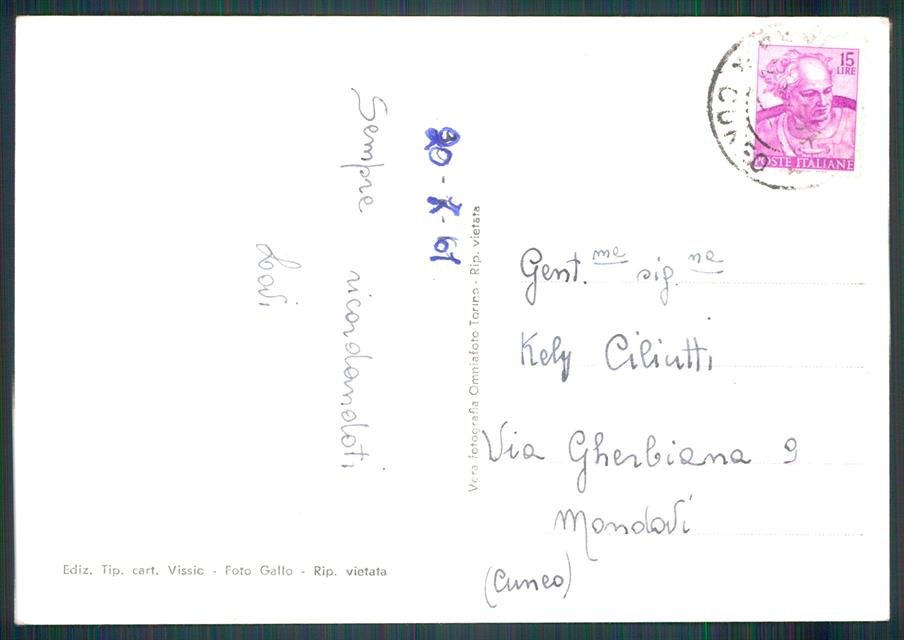 15
LIRE
POSTE ITALIANE
Sempre ricordandoti
20-X-61
Vera fotografia Omniafoto Torino - Rip. vietata
Gent.me sig.na
Kely Ciliutti
Via Gherbiana 9
Mondovì
(Cuneo)
Ediz. Tip. cart. Vissio - Foto Gallo - Rip. vietata